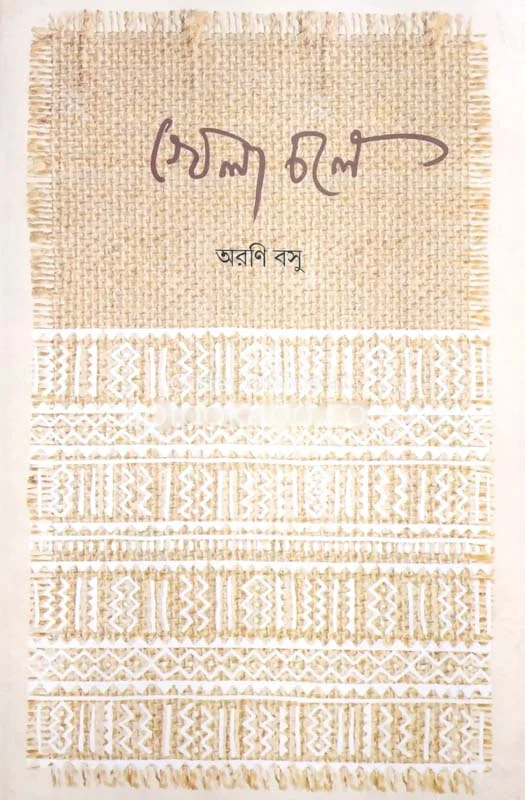 খেলা চলে
অরণি বসু